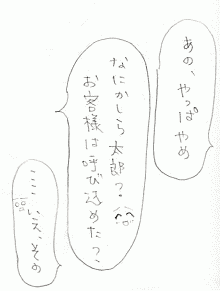 あの、やっぱやめ
なにかしら太郎っ?
お客様は呼び込めたっ?
ここ いえ、その